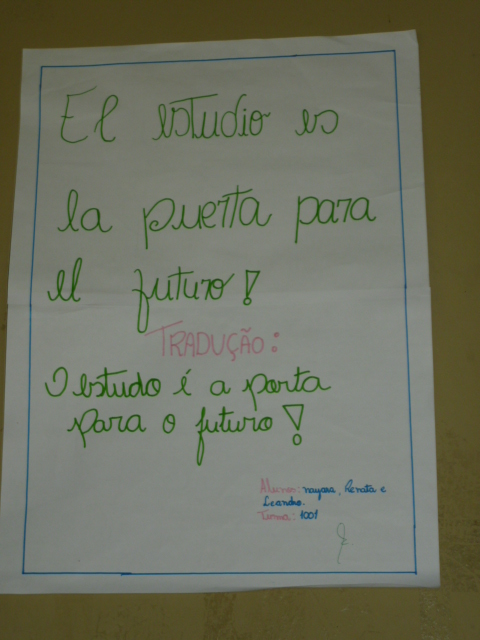 El estudio es
la puerta para
el futuro!
TRADUÇÃO:
O estudo é a porta
para o futuro!
Alunos: nayara, Renata e
Leandro.
Turma: 1001